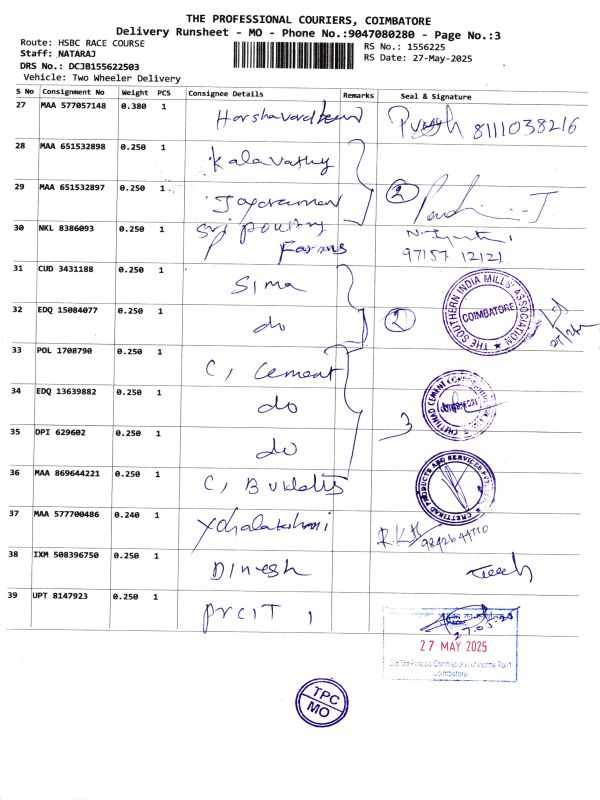 THE PROFESSIONAL COURIERS, COIMBATORE
Delivery Runsheet - MO - Phone No.:9047080280 - Page No.:3
Route: HSBC RACE COURSE
RS No.: 1556225
Staff: NATARAJ
RS Date: 27-May-2025
DRS No.: DCJB155622503
Vehicle: Two Wheeler Delivery
S No Consignment No Weight PCS Consignee Details Remarks Seal & Signature
27 MAA 577057148 0.380 1 8111038216
28 MAA 651532898 0.250 1 Kalavathy
29 MAA 651532897 0.250 1 Jayaraman 2
30 NKL 8386093 0.250 1 Sri Poultry
Farms 97157 12121
31 CUD 3431188 0.250 1 Sima
THE SOUTHERN INDIA MILLS' ASSOCIATION
COIMBATORE
32 EDQ 15084077 0.250 1 do 2
33 POL 1708790 0.250 1 C, Cement
34 EDQ 13639882 0.250 1 do
35 DPI 629602 0.250 1 do 3
36 MAA 869644221 0.250 1
37 MAA 577700486 0.240 1
38 IXM 508396750 0.250 1 Dinesh
39 UPT 8147923 0.250 1 PrCIT
27 MAY 2025
Coimbatore
TPC
MO